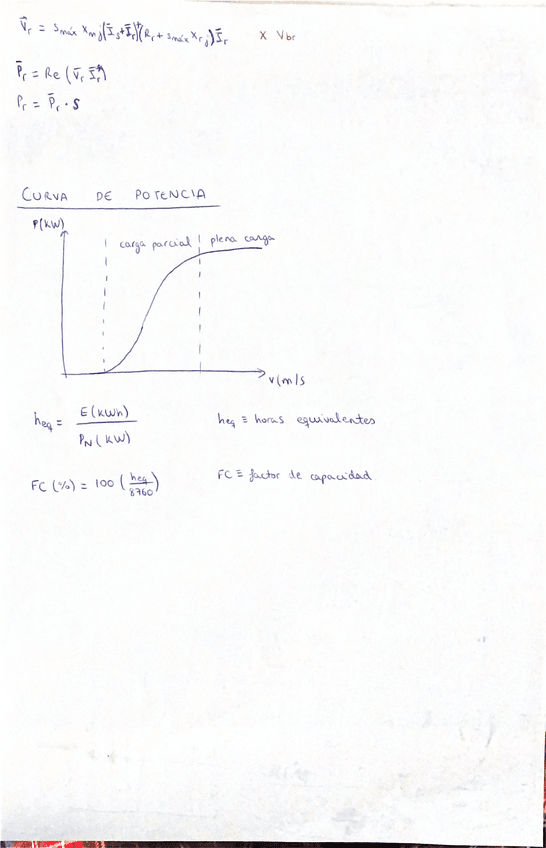 V̄r = smáx Xm j(Īs+Īr)+(Rr + smáx Xr j) Īr   x Vbr
P̄r = Re (V̄r Īr*)
Pr = P̄r · S
CURVA DE POTENCIA
P(kW)
carga parcial plena carga
v(m/s
heq = E(kWh) / PN(kW)   heq ≡ horas equivalentes
FC (%) = 100 (heq / 8760)   FC ≡ factor de capacidad